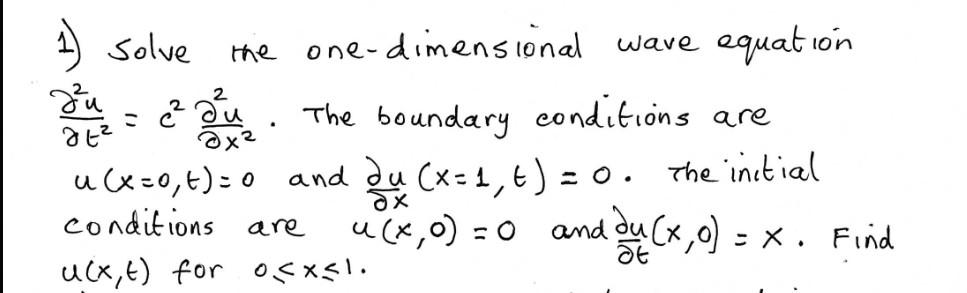 1) Solve the one-dimensional wave equation
∂²u/∂t² = c² ∂²u/∂x² . The boundary conditions are
u(x=0,t)=0 and ∂u/∂x (x=1,t) = 0. The initial
conditions are u(x,0) = 0 and ∂u/∂t (x,0) = x. Find
u(x,t) for 0≤x≤1.